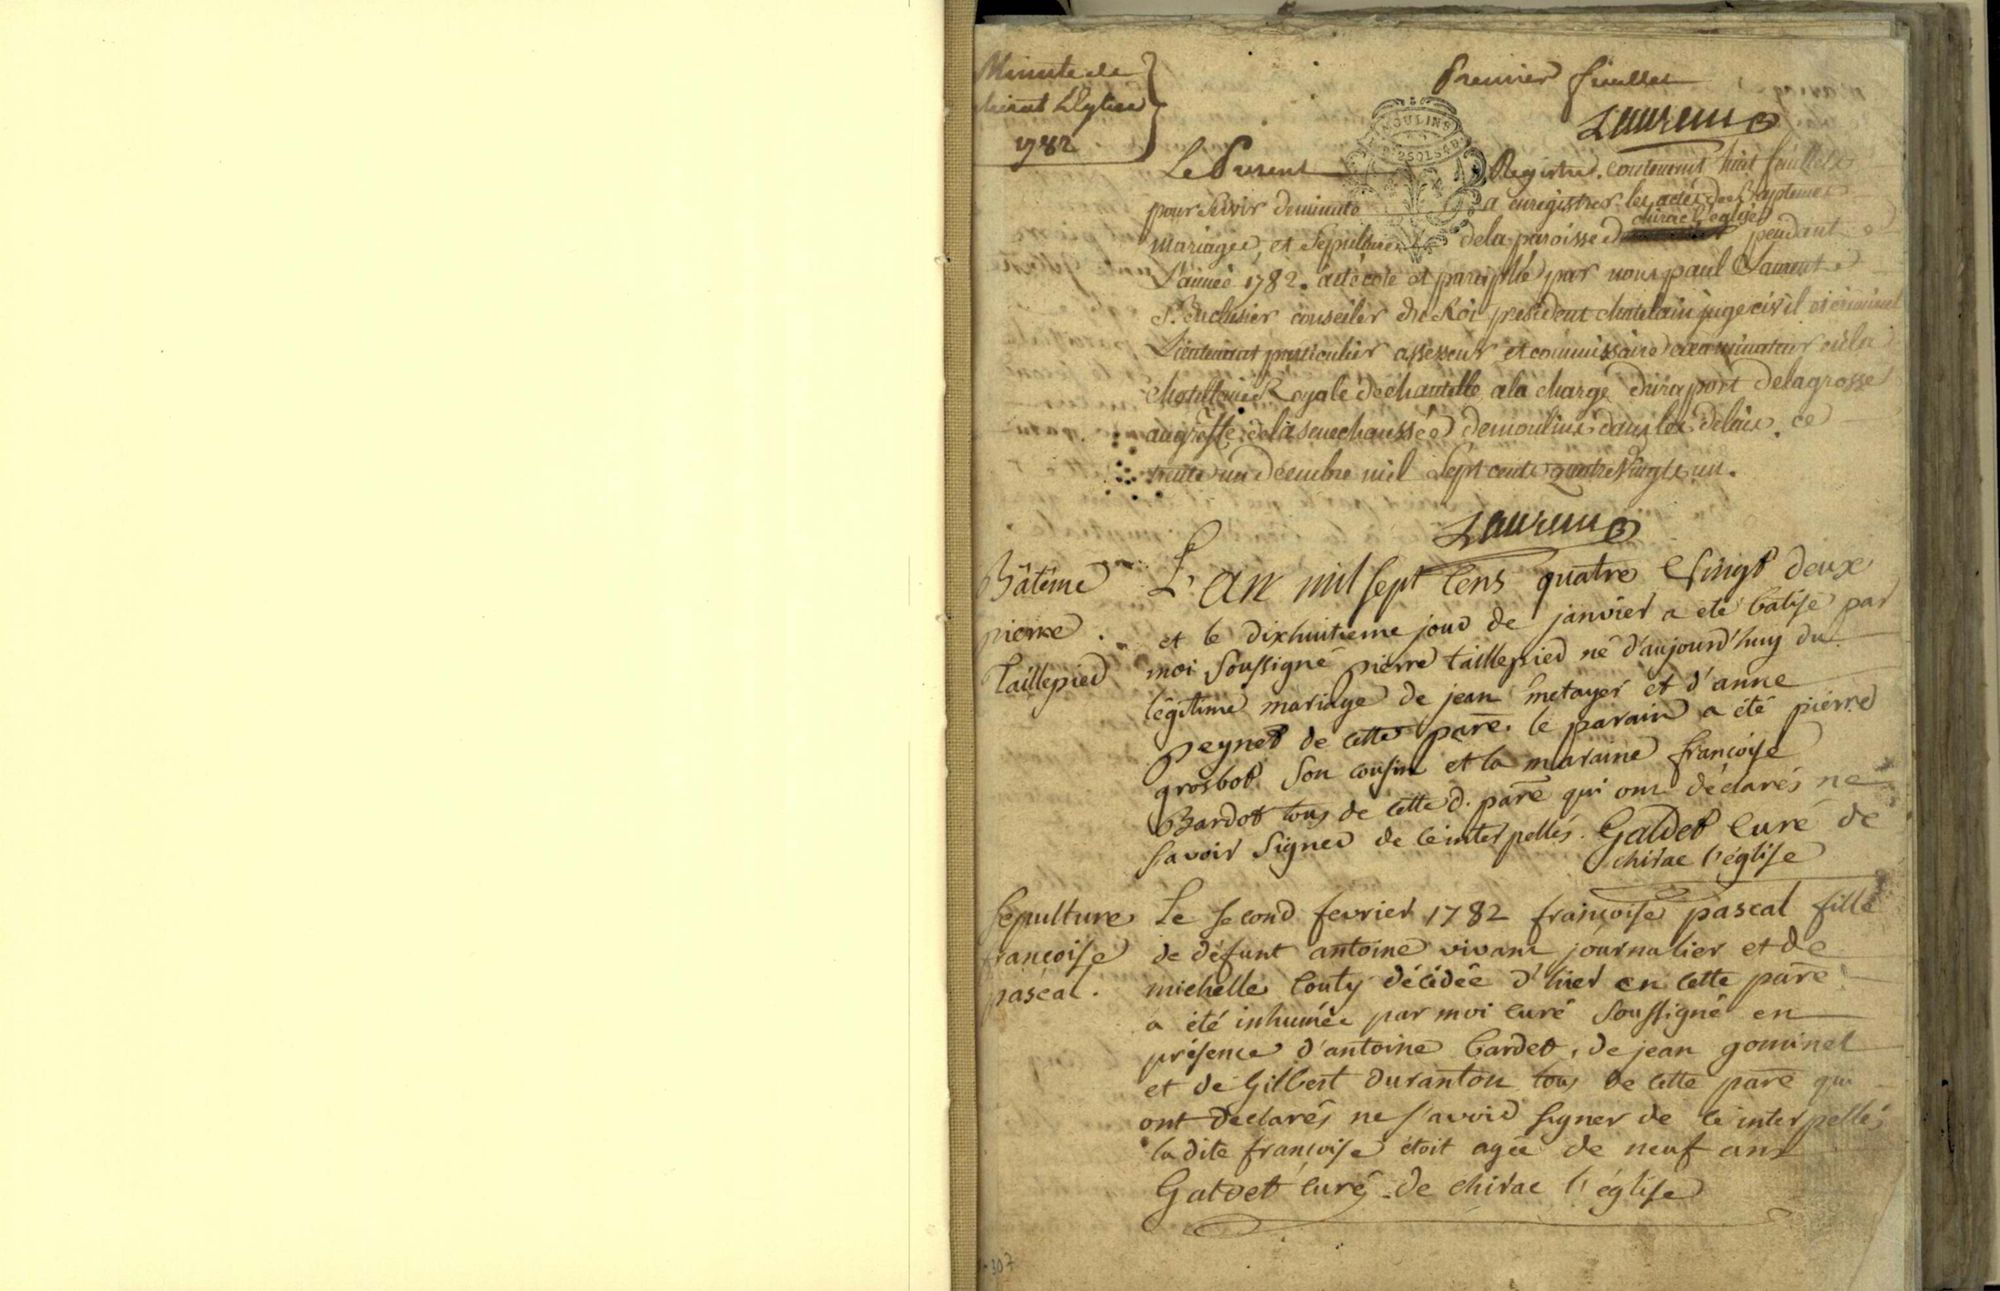 Minute de
chirat L'Eglise
1782
Premier feuillet
Laurent
MOULINS
2SOLS4D
Le Present Registre contenant huit feuillets
pour servir de minute a enregistrer les actes de Baptemes
chirac l'eglise
mariages et Sepultures de la paroisse de pendant
L'année 1782. a été coté et paraphé par nous paul Laurent
conseiler du Roi president chatelain juge civil et criminel
Lieutenant particulier assesseur et commissaire examinateur en la
chatellenie Royale de chantelle, a la charge du raport de la grosse
au greffe de la senechaussée de moulins dans les delais. ce
trente un Decembre mil Sept cents quatre Vingts un.
Laurent
Bâtême
pierre
taillepied
L'an mil sept cens quatre vingt deux
et le dixhuitieme jour de janvier a eté batisé par
moi soussigné pierre taillepied né d'aujourd'huy du
légitime mariage de jean métayer et d'anne
peynet de cette parë. le parain a été pierre
grosbot son cousin et la maraine françoise
Bardot tous de cette d. parë qui ont déclarés ne
savoir signer de ce interpellés. Gardet curé de
chirac l'église
sépulture
françoise
pascal.
Le second fevrier 1782 françoise pascal fille
de défunt antoine vivant journalier et de
michelle couty décédée d'hier en cette parë
a été inhumée par moi curé soussigné en
présence d'antoine bardet, de jean gominet
et de gilbert duranton tous de cette parë qui
ont declarés ne savoir signer de ce interpellés
la dite françoise étoit agée de neuf ans
Gardet curé de chirac l'église
307